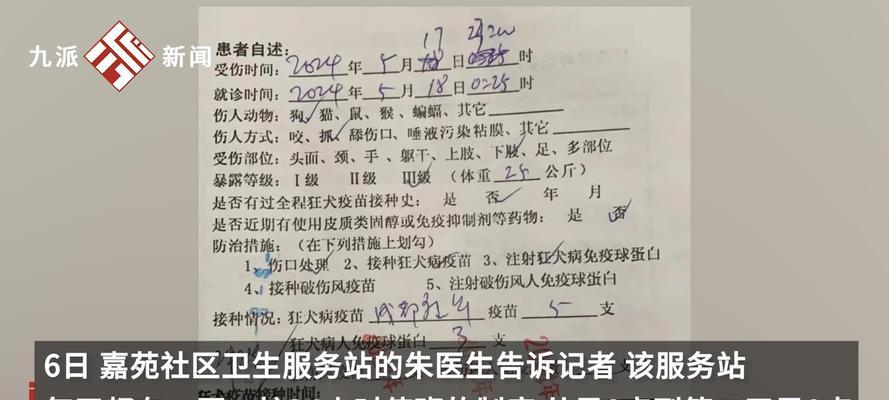 九派 新闻
患者自述：
受伤时间：2024年 5月 17日 时
就诊时间：2024年 5月 18日 0:25时
伤人动物：狗、猫、鼠、猴、蝙蝠、其它
伤人方式：咬、抓、舔伤口、唾液污染粘膜、其它
受伤部位：头面、颈、手、躯干、上肢、下肢、足、多部位
暴露等级：Ⅰ级 Ⅱ级 Ⅲ级 （体重 25 公斤）
是否有过全程狂犬疫苗接种史： 是 否 年 月
是否近期有使用皮质类固醇或免疫抑制剂等药物： 是 否
防治措施：（在下列措施上划勾）
1、伤口处理 2、接种狂犬病疫苗 3、注射狂犬病免疫球蛋白
4、接种破伤风疫苗 5、注射破伤风人免疫球蛋白
接种情况：狂犬病疫苗 成都 疫苗 5 支
狂犬病人免疫球蛋白 3 支
6日 嘉苑社区卫生服务站的朱医生告诉记者 该服务站